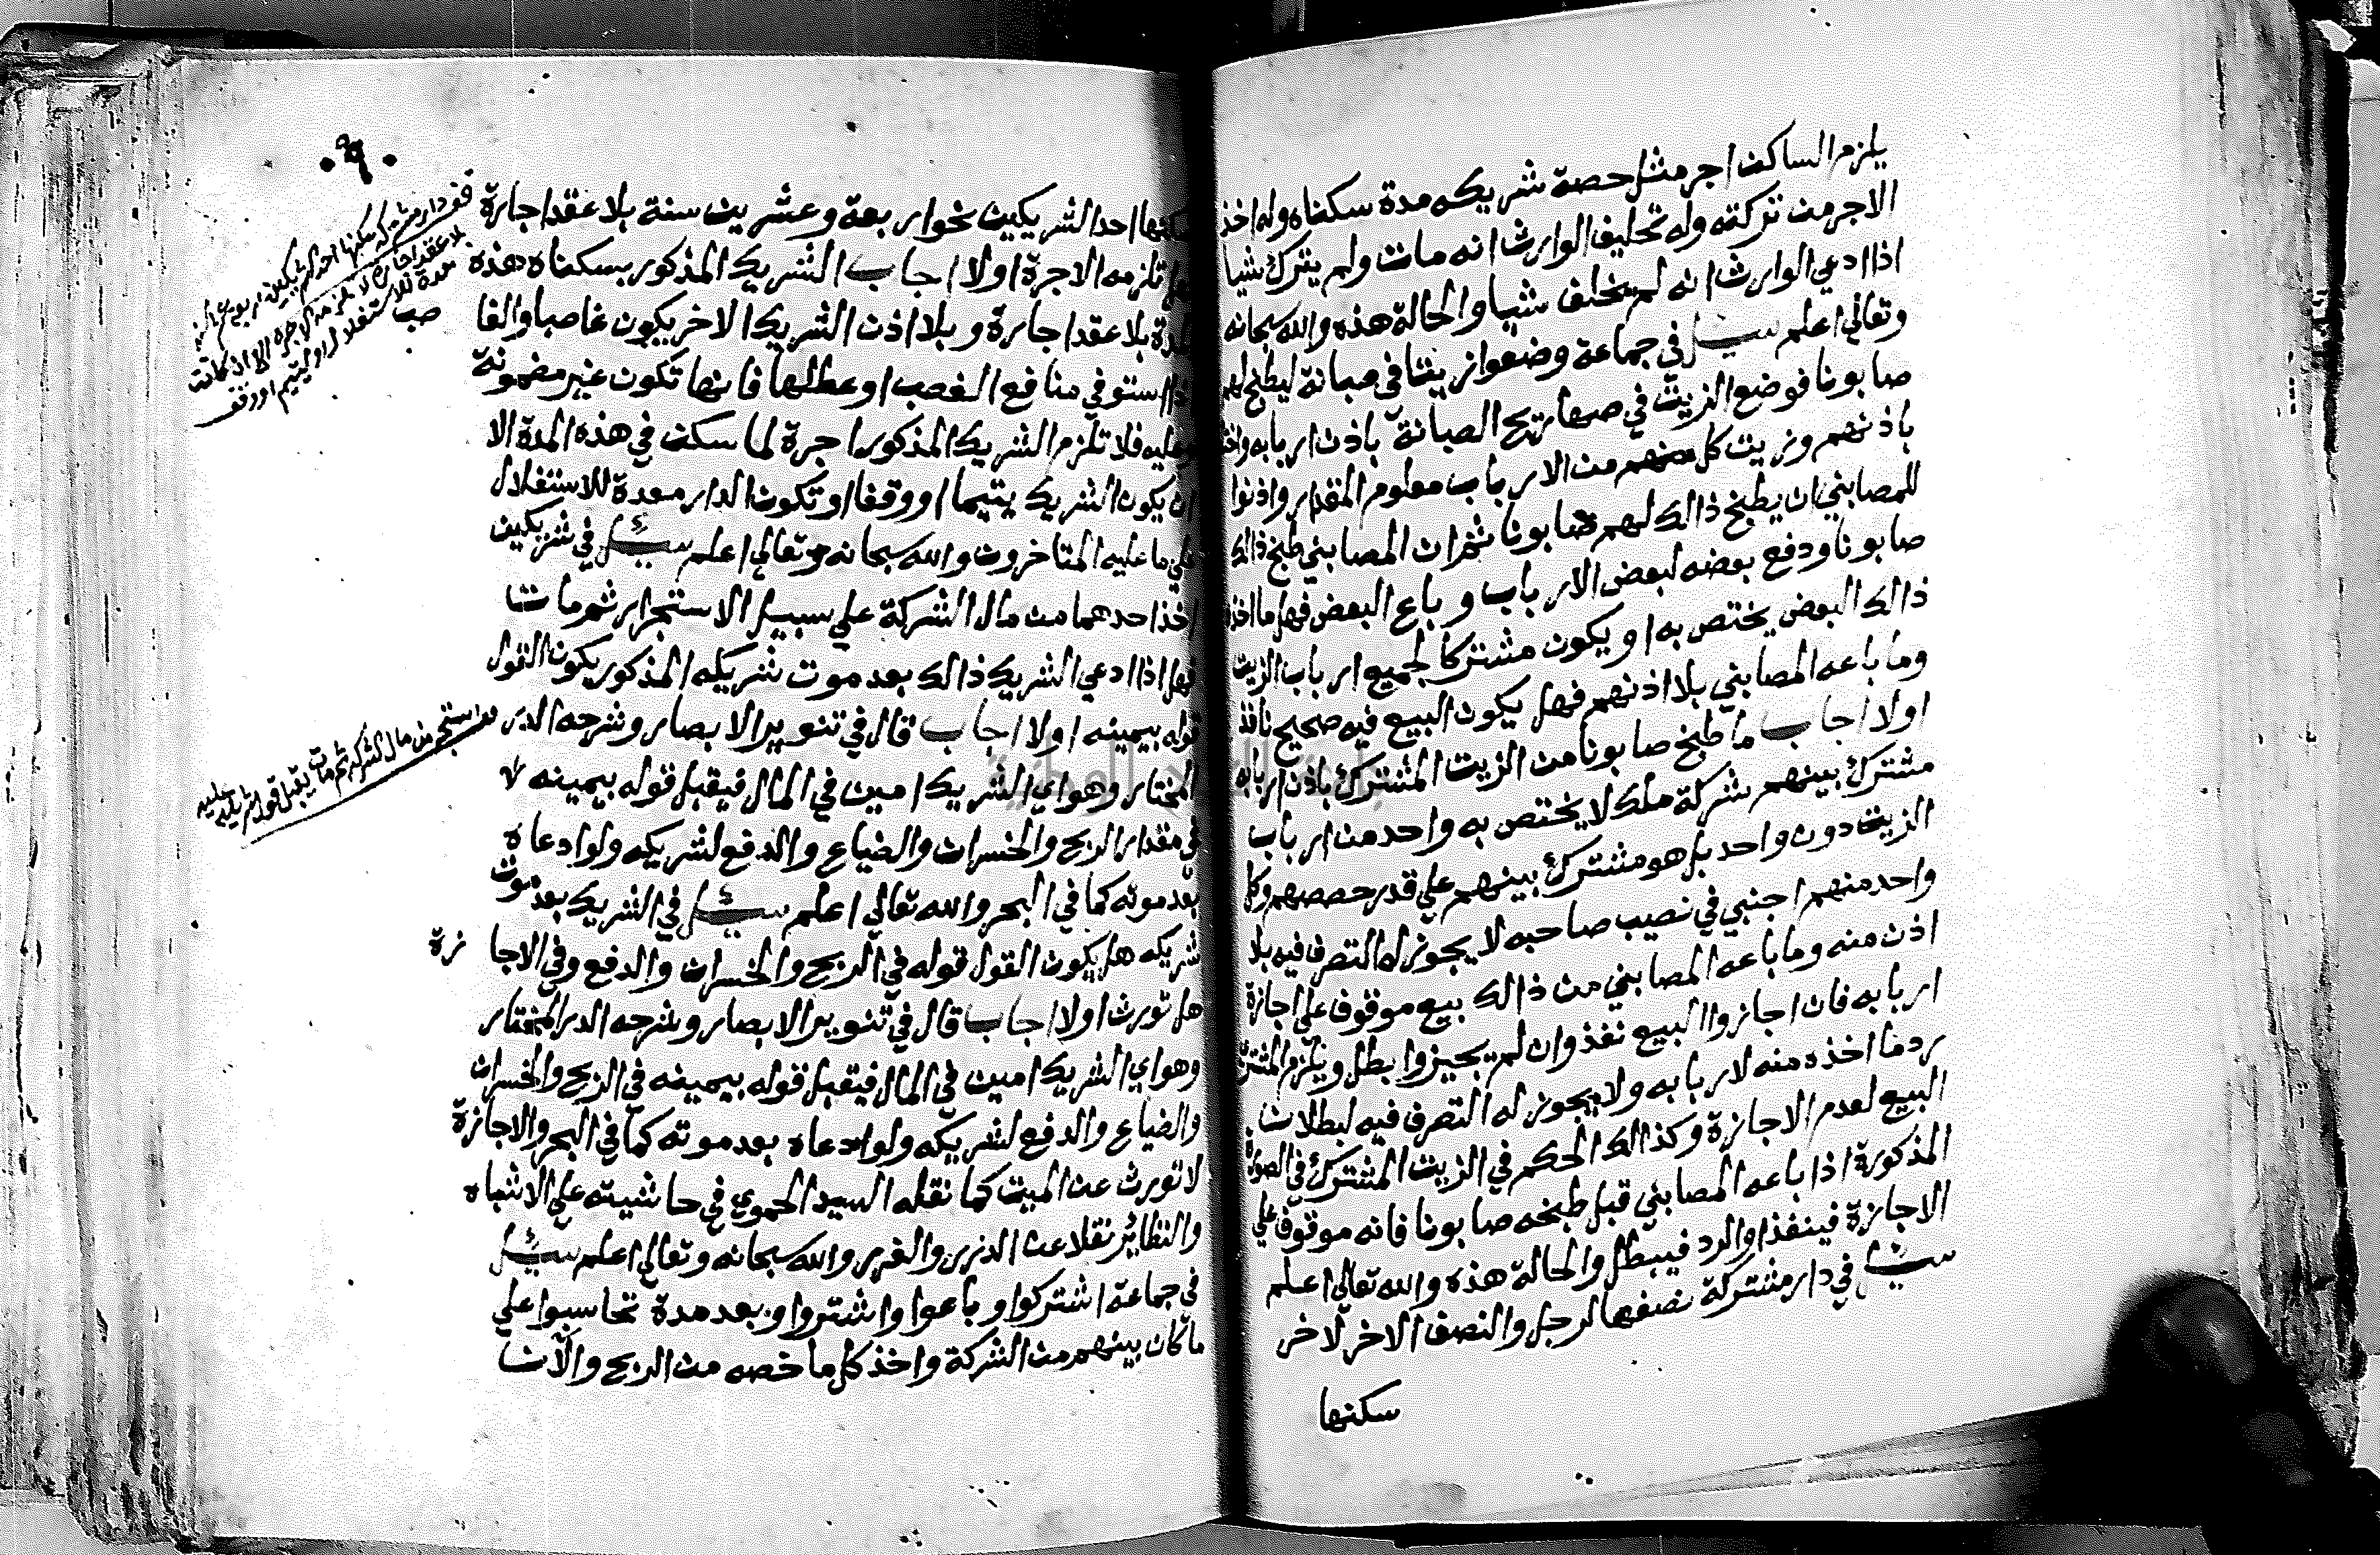 يلزم الساكن اجر مثل حصة شريكه مدة سكناه وله اخذ
الاجر من تركته وله تحليف الوارث انه مات ولم يترك شيا
اذا ادعي الوارث انه لم يخلف شيا والحالة هذه والله سبحانه
وتعالي اعلم سئل في جماعة وضعوا زيتا في مصبانة ليطبخ لهم
صابونا فوضع الزيت في صهاريج الصبانة باذن اربابه
باذنهم وزيت كل منهم من الارباب معلوم المقدار واذنوا
للمصابني ان يطبخ ذالك لهم صابونا ثم ان المصابني طبخ ذالك
صابونا ودفع بعضه لبعض الارباب وباع البعض فهل ما اخذه
ذالك البعض يختص به او يكون مشتركا لجميع ارباب الزيت
وما باعه المصابني بلا اذنهم فهل يكون البيع فيه صحيح نافذ
اولا اجاب ما طبخ صابونا من الزيت المشترك باذن اربابه
مشترك بينهم شركة ملك لا يختص به واحد من ارباب
الزيت دون واحد بل هو مشترك بينهم علي قدر حصصهم وكل
واحد منهم اجنبي في نصيب صاحبه لا يجوز له التصرف فيه بلا
اذن منه وما باعه المصابني من ذالك بيع موقوف علي اجازة
اربابه فان اجازوا البيع نفذ وان لم يجيزوا بطل ويلزم المشتري
رد ما اخذه منه لاربابه ولا يجوز له التصرف فيه لبطلان
البيع لعدم الاجازة وكذالك الحكم في الزيت المشترك في الصورة
المذكورة اذا باعه المصابني قبل طبخه صابونا فانه موقوف علي
الاجازة فينفذ او الرد فيبطل والحالة هذه والله تعالي اعلم
سئل في دار مشتركة نصفها لرجل والنصف الاخر لاخر
سكنها
٩٠
سكنها احد الشريكين نحو اربعة وعشرين سنة بلا عقد اجارة
هل تلزمه الاجرة اولا اجاب الشريك المذكور بسكناه هذه
المدة بلا عقد اجارة وبلا اذن الشريك الاخر يكون غاصبا والغا
اذا استوفي منافع الغصب او عطلها فانها تكون غير مضمونة
عليه فلا تلزم الشريك المذكور اجرة لما سكن في هذه المدة الا
ان يكون الشريك يتيما او وقفا او تكون الدار معدة للاستغلال
علي ما عليه المتاخرون والله سبحانه وتعالي اعلم سئل في شريكين
اخذ احدهما من مال الشركة علي سبيل الاستجرار ثم مات
فهل اذا ادعي الشريك ذالك بعد موت شريكه المذكور يكون القول
قوله بيمينه اولا اجاب قال في تنوير الابصار وشرحه الدر
المختار وهو اي الشريك امين في المال فيقبل قوله بيمينه
في مقدار الربح والخسران والضياع والدفع لشريكه ولو ادعاه
بعد موته كما في البحر والله تعالي اعلم سئل في الشريك بعد موت
شريكه هل يكون القول قوله في الربح والخسران والدفع وفي الاجا زة
هل تورث اولا اجاب قال في تنوير الابصار وشرحه الدر المختار
وهو اي الشريك امين في المال فيقبل قوله بيمينه في الربح والخسران
والضياع والدفع لشريكه ولو ادعاه بعد موته كما في البحر والاجازة
لا تورث عن الميت كما نقله السيد الحموي في حاشيته علي الاشباه
والنظاير نقلا عن الدرر والغرر والله سبحانه وتعالي اعلم سئل
في جماعة اشتركوا وباعوا واشتروا وبعد مدة تحاسبوا علي
ما كان بينهم من الشركة واخذ كل ما خصه من الربح والان
دار مشتركة سكنها احد الشريكين
بلا عقد اجارة لا تلزمه الاجرة الا ان كانت
معدة للاستغلال او ليتيم او وقف
استجر من مال الشركة ثم مات يقبل قول شريكه عليه